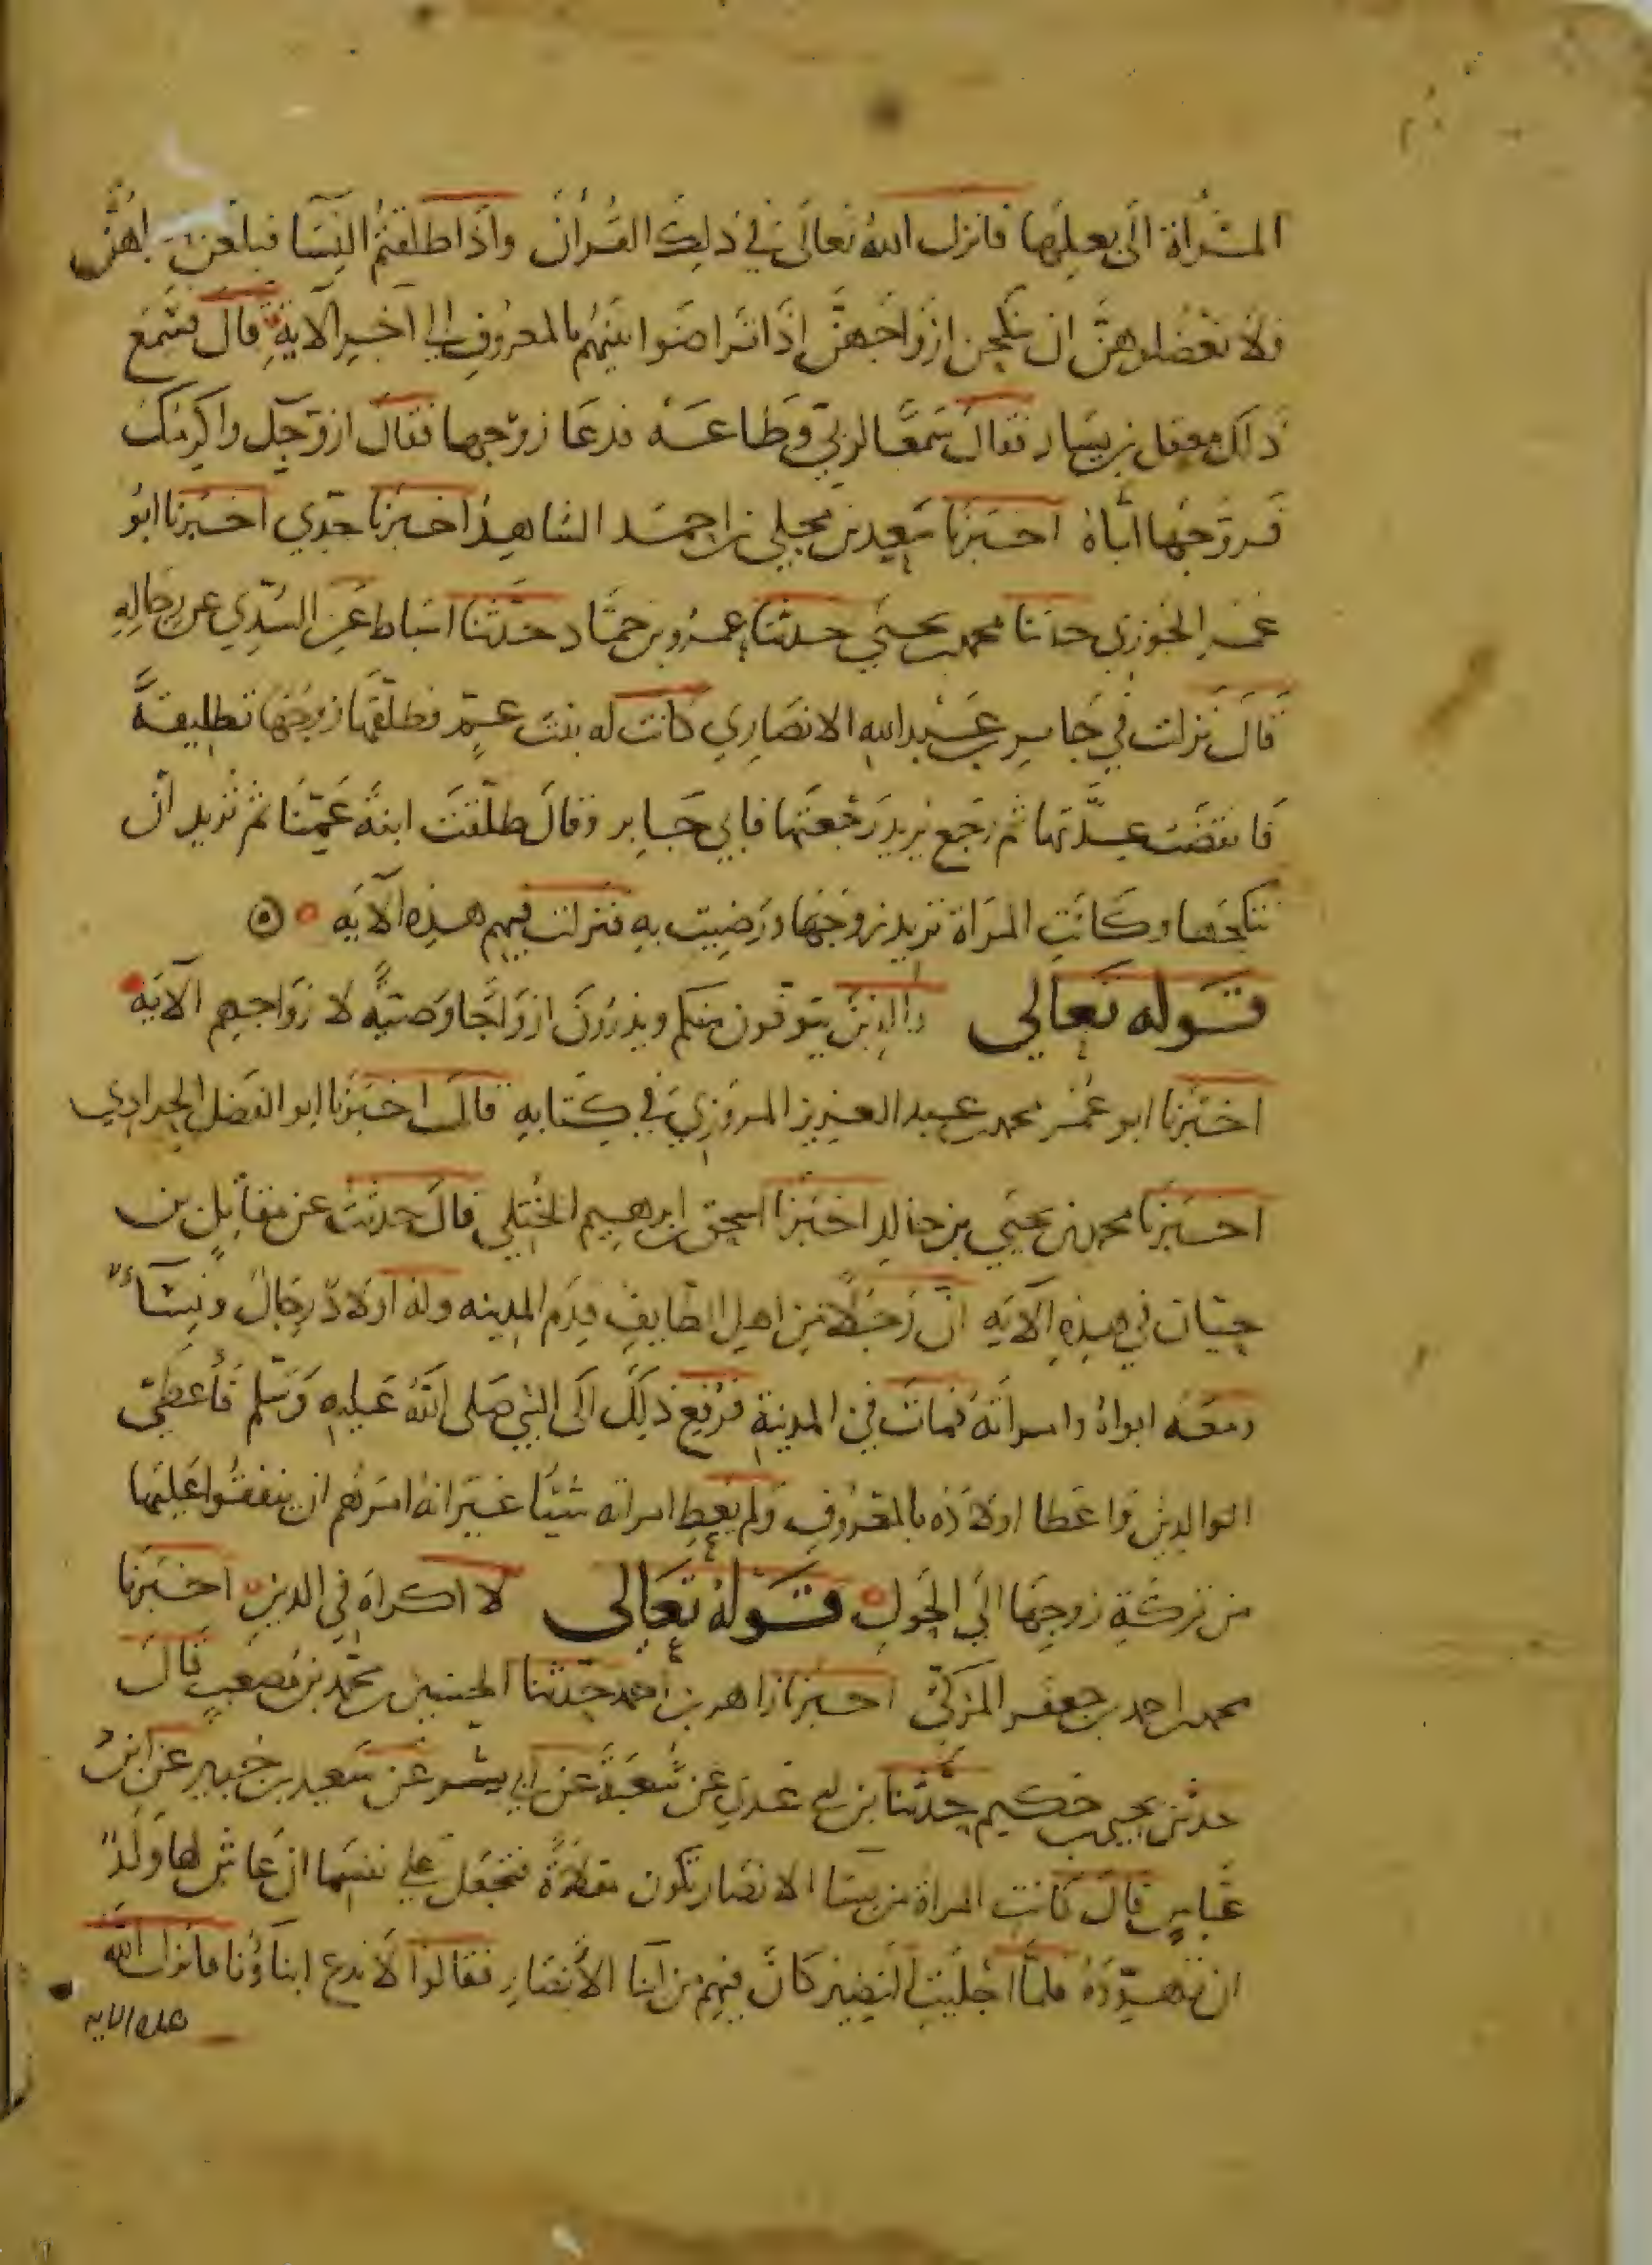 المرأة الى بعلها فانزل الله تعالى في ذلك القرآن واذا طلقتم النسا فبلغن اجلهن
فلا تعضلوهن ان ينكحن ازواجهن اذا تراضوا بينهم بالمعروف الى آخر الآية قال فسمع
ذلك معقل بن يسار فقال سمعًا لربي وطاعة فدعا زوجها فقال ازوجك واكرمك
فزوجها اياه اخبرنا سعيد بن محمد بن احمد الشاهد اخبرنا جدي اخبرنا ابو
عمر الجوزي حدثنا محمد بن يحيى حدثنا عمرو بن حماد حدثنا اسباط عن السدي عن رجاله
قال نزلت في جابر بن عبد الله الانصاري كانت له بنت عم فطلقها زوجها تطليقة
فانقضت عدتها ثم رجع يريد رجعتها فابى جابر وقال طلقت ابنة عمنا ثم تريد ان
تنكحها وكانت المرأة تريد زوجها ورضيت به فنزلت فيهم هذه الآية
قوله تعالى والذين يتوفون منكم ويذرون ازواجا وصية لازواجهم الآية
اخبرنا ابو عمر محمد بن عبد العزيز المروزي في كتابه قال اخبرنا ابو الفضل الحدادي
اخبرنا محمد بن يحيى بن خالد اخبرنا اسحق بن ابرهيم الحنظلي قال حدثت عن مقاتل بن
حيان في هذه الآية ان رجلا من اهل الطايف قدم المدينه وله اولاد رجال ونساء
ومعه ابواه وامرأته فمات في المدينة فرفع ذلك الى النبي صلى الله عليه وسلم فأعطى
الوالدين واعطا اولاده بالمعروف ولم يعط امراته شيئا غير انه امرهم ان ينفقوا عليها
من تركة زوجها الى الحول قوله تعالى لا اكراه في الدين اخبرنا
محمد بن احمد بن جعفر المزكي اخبرنا زاهر بن احمد حدثنا الحسين بن محمد بن مصعب قال
حدثنى يحيى بن حكيم حدثنا بن ابي عدي عن شعبة عن ابي بشر عن سعيد بن جبير عن ابن
عباس قال كانت المراة من نسا الانصار تكون مقلاة فتجعل على نفسها ان عاش لها ولد
ان تهوده فلما اجليت النضير كان فيهم من ابنا الأنصار فقالوا لا ندع ابناؤنا فانزل الله
هذه الايه